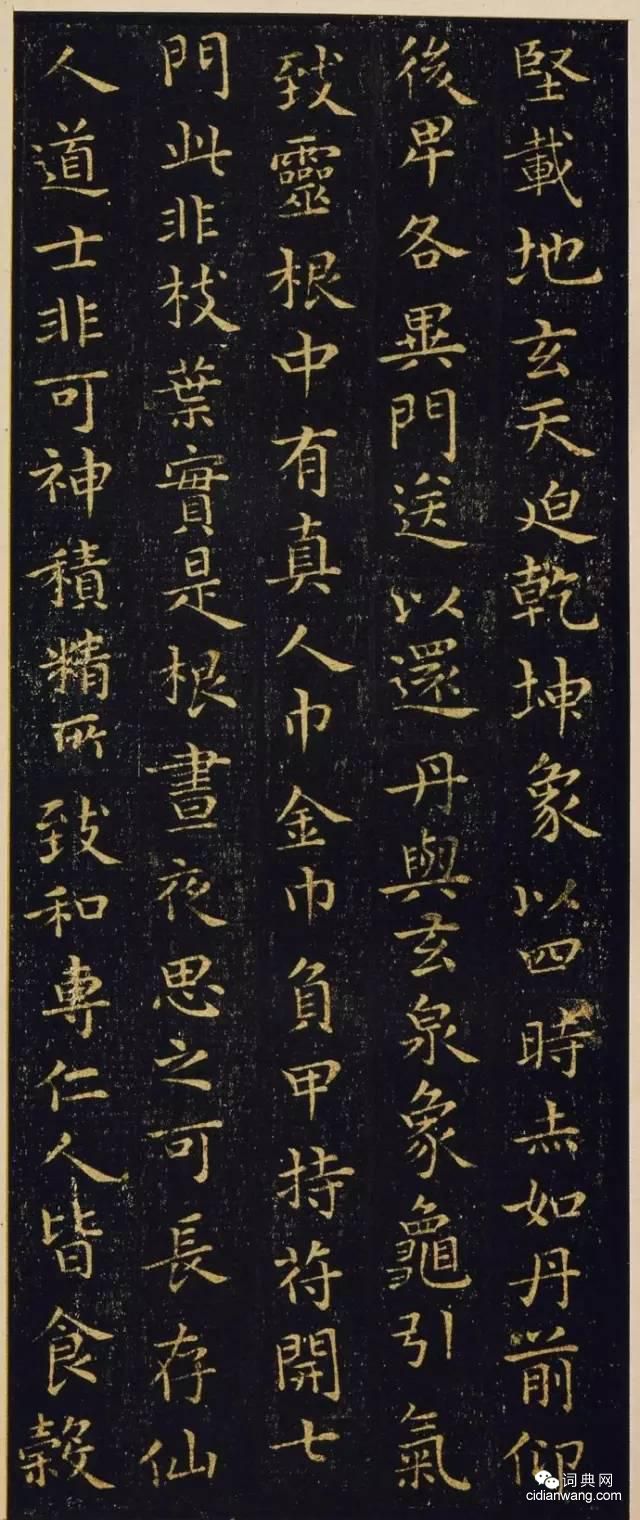 堅載地玄天迫乾坤象以四時赤如丹前仰
後卑各異門送以還丹與玄泉象龜引氣
致靈根中有真人巾金巾負甲持符開七
門此非枝葉實是根晝夜思之可長存仙
人道士非可神積精所致和專仁人皆食穀
词典网
cidianwang.com